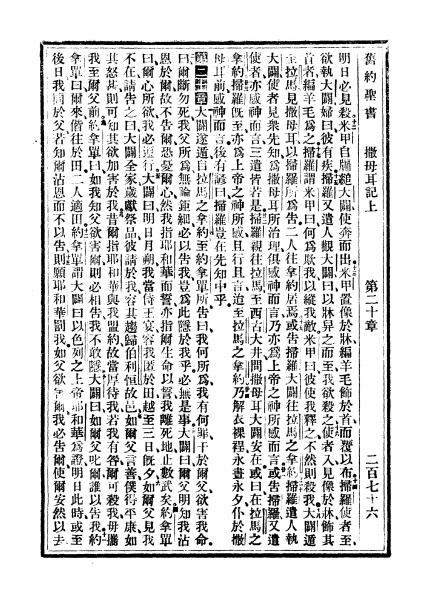 舊約聖書　撒母耳記上　第二十章　二百七十六
明日必見殺米甲自牖縋大闢使奔而出米甲置像於牀編羊毛飾於首而覆以布掃羅使者至
欲執大闢婦曰彼有疾掃羅又遣人觀大闢曰以牀舁之而至我欲殺之使者入見像於牀飾其
首者編羊毛爲之掃羅謂米甲曰何爲欺我以縱我敵米甲曰彼使我釋之不然則殺我大闢遁
至拉馬見撒母耳以掃羅所爲告二人往拿約居焉或告掃羅大闢往拉馬之拿約掃羅遣人執
大闢使者見衆先知爲撒母耳所治理俱感神而言乃亦爲上帝之神所感而言或告掃羅又遣
使者亦感神而言三遣使者若是掃羅親往拉馬至西古大井問撒母耳大闢安在或曰在拉馬之
拿約掃羅旣至亦爲上帝之神所感且行且言迨至拉馬之拿約乃解衣裸程永晝永夕仆於撒
母耳前感神而言後有諺曰掃羅豈在先知中乎
第二十章大闢遂遁自拉馬之拿約至約拿單所告曰我何所爲我有何罪干於爾父欲害我命
曰爾斷勿死我父所爲無論鉅細必以告我豈爲此隱於我乎必無是事大闢曰爾父明知我沾
恩於爾故不告爾恐憂爾心然我指耶和華而誓亦指爾生命以誓我離死地止數武矣約拿單
曰爾心所欲我必遂行大闢曰明日月朔我當侍王宴容我匿於田越至三日旣夕如爾父見我
不在請告之曰大闢全家歲獻祭品彼請於我容其趨歸伯利恒故邑如爾父言善僕得平康如
其怒甚則可知其欲加害於我昔爾指耶和華與我盟約故當厚待我若我有咎爾可殺我毋攜
我至爾父前約拿單曰如我知父欲害爾則必相告我不敢隱大闢曰如父叱爾誰以告我約
拿單曰爾來偕往於田二人適田約拿單謂大闢曰以色列之上帝耶和華爲證明日此時或至
後日我問於父若知爾沾恩而不以告則願耶和華罰我如父欲害爾我必告爾使爾安然以去